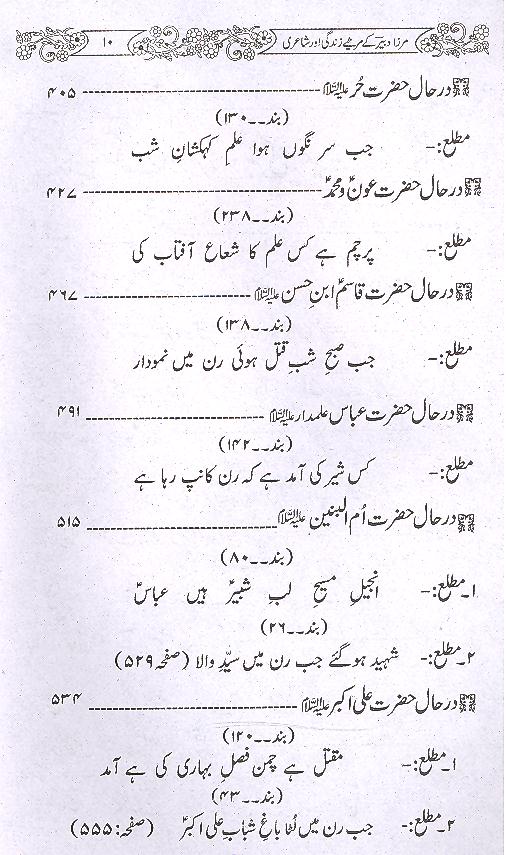 مرزا دبیرؔ کے مرثیے زندگی اور شاعری ۱۰
در حال حضرت حُر علیہ السلام ------------ ۴۰۵
(بند۔۔۱۳۰)
مطلع:- جب سر نگوں ہوا علمِ کہکشانِ شب
در حال حضرت عونؑ و محمدؑ ------------ ۴۲۷
(بند۔۔۲۳۸)
مطلع:- پرچم ہے کس علم کا شعاع آفتاب کی
در حال حضرت قاسمؑ ابنِ حسن علیہ السلام ------------ ۴۶۷
(بند۔۔۱۳۸)
مطلع:- جب صبحِ شبِ قتل ہوئی رن میں نمودار
در حال حضرت عباس علمدار علیہ السلام ------------ ۴۹۱
(بند۔۔۱۴۲)
مطلع:- کس شیر کی آمد ہے کہ رن کانپ رہا ہے
در حال حضرت اُم البنین علیہ السلام ------------ ۵۱۵
(بند۔۔۸۰)
۱۔مطلع:- انجیلِ مسیحِ لبِ شبیرؑ ہیں عباسؑ
(بند۔۔۲۶)
۲۔مطلع:- شہید ہوگئے جب رن میں سیّدِ والا (صفحہ ۵۲۹)
در حال حضرت علی اکبر علیہ السلام ------------ ۵۳۴
(بند۔۔۱۲۰)
۱۔مطلع:- مقتل ہے چمن فصلِ بہاری کی ہے آمد
(بند۔۔۴۳)
۲۔مطلع:- جب رن میں لُٹا باغِ شبابِ علی اکبرؑ (صفحہ:۵۵۵)